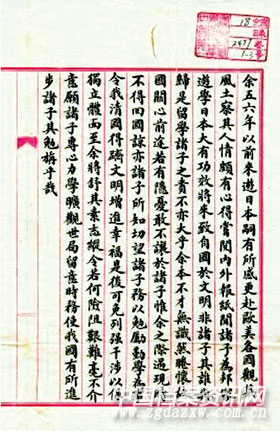 余五六年以前來遊日本嗣有所感更赴歐美各國觀其
風土察其人情頗有心得嘗閱內外報紙聞諸子為
遊學日本大有功效將來致自國於文明非諸子其誰
歸是留學諸子之責不亦大乎余本不才無識
國關心前途若有隱憂敢不讓於諸子惟余之際遇現
不得回國諒亦諸子所知切望諸子務以勉勵勤學為
令我清國得躋文明增進幸福是後可免列强干涉以
獨立體面至余將舒其素志縱令若何險阻艱難毫不介
意願諸子專心力學曠觀世局留意時務使我國有所進
步諸子其勉旃乎哉
18
2471
1-3
中国档案资讯网
www.zgdazxw.com.cn